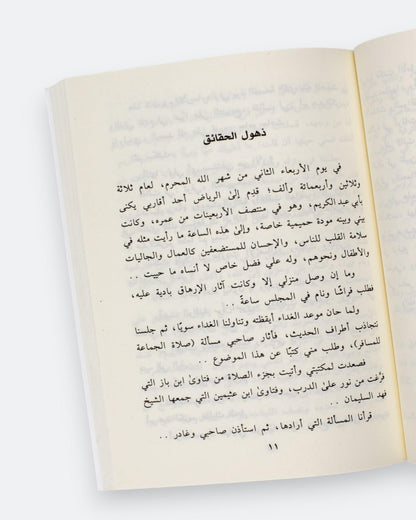 ذهول الحقائق
في يوم الأربعاء الثاني من شهر الله المحرم، لعام ثلاثة
وثلاثين وأربعمائة وألف؛ قدِم إلى الرياض أحد أقاربي يكنى
بأبي عبد الكريم، وهو في منتصف الأربعينات من عمره، وكانت
بيني وبينه مودة حميمية خاصة، وإلى هذه الساعة ما رأيت مثله في
سلامة القلب للناس، والإحسان للمستضعفين كالعمال والجاليات
والأطفال ونحوهم، وله علي فضل خاص لا أنساه ما حييت ..
وما إن وصل منزلي إلا وكانت آثار الإرهاق بادية عليه،
فطلب فراشًا ونام في المجلس ساعةً ..
ولما حان موعد الغداء أيقظته وتناولنا الغداء سويًا، ثم جلسنا
نتجاذب أطراف الحديث، فأثار صاحبي مسألة (صلاة الجماعة
للمسافر)، وطلب مني كتبًا عن هذا الموضوع ..
فصعدت لمكتبتي وأتيت بجزء الصلاة من فتاوى ابن باز التي
فرّغت من نور على الدرب، وفتاوى ابن عثيمين التي جمعها الشيخ
فهد السليمان ..
قرأنا المسألة التي أرادها، ثم استأذن صاحبي وغادر ..
١١